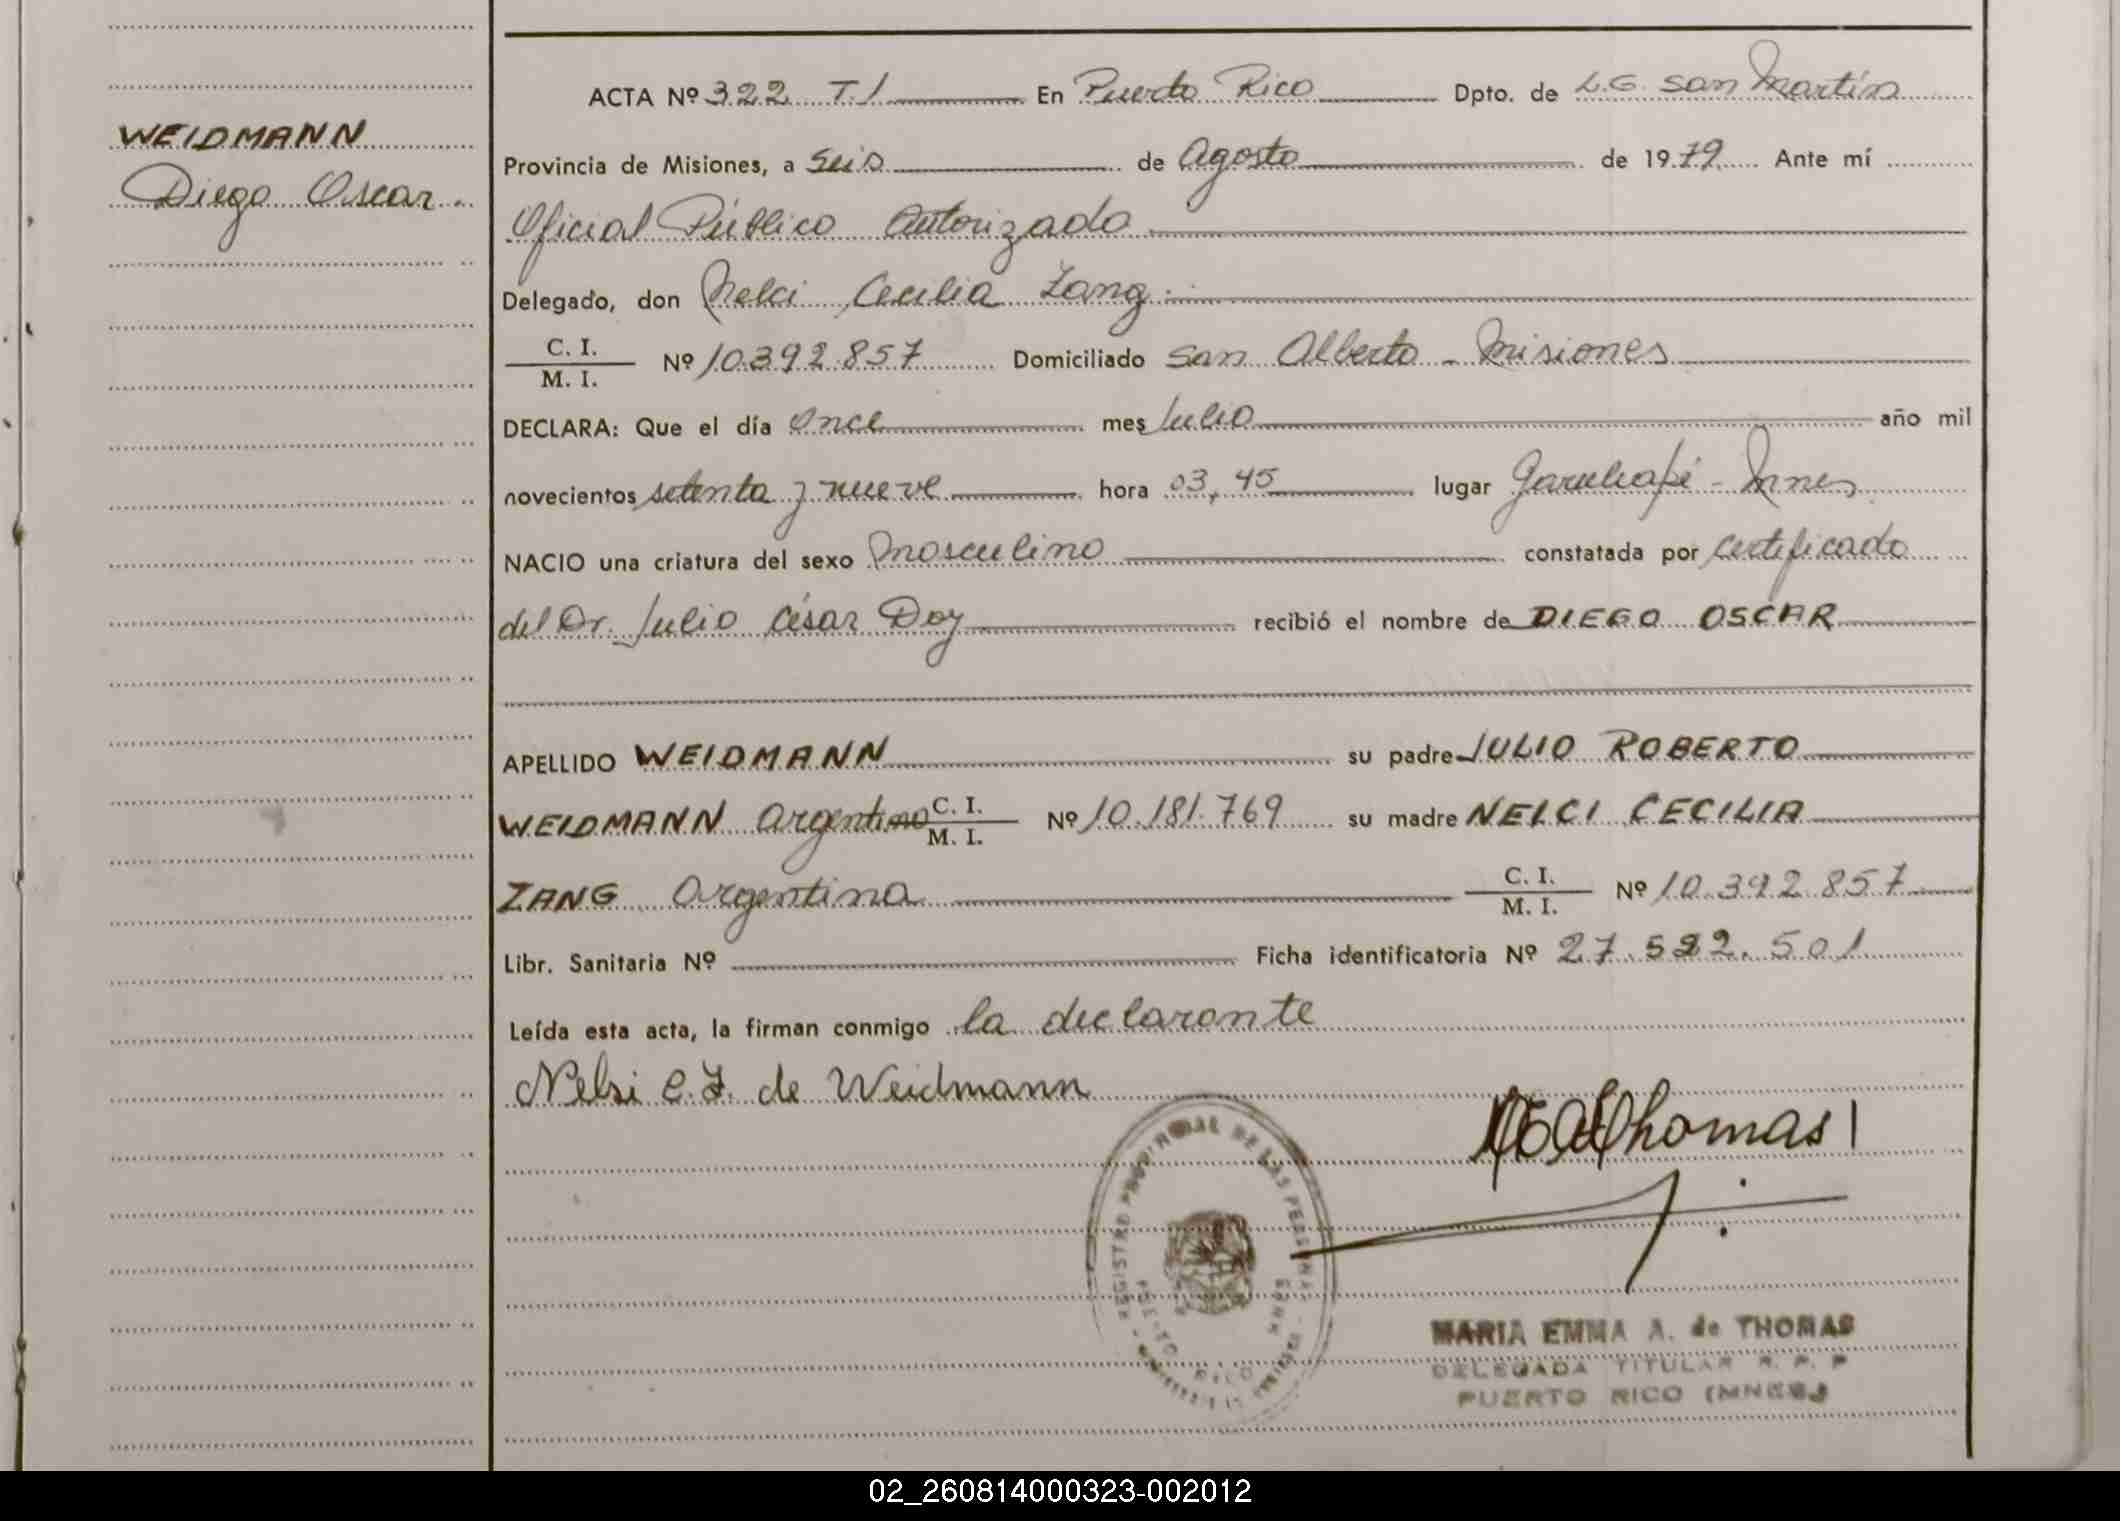 WEIDMANN
Diego Oscar.
ACTA Nº 322 T.I En Puerto Rico Dpto. de L.G. San Martín
Provincia de Misiones, a Seis de Agosto de 1979. Ante mí
Oficial Público Autorizado
Delegado, don Nelci Cecilia Zang.
C. I.
M. I. Nº 10.392.857 Domiciliado San Alberto - Misiones
DECLARA: Que el día Once mes Julio año mil
novecientos setenta y nueve hora 03,45 lugar Garuhapé - Mnes
NACIO una criatura del sexo Masculino constatada por certificado
del Dr. Julio César Doy recibió el nombre de DIEGO OSCAR
APELLIDO WEIDMANN su padre JULIO ROBERTO
WEIDMANN argentino C. I.
M. I. Nº 10.181.769 su madre NELCI CECILIA
ZANG argentina C. I.
M. I. Nº 10.392.857
Libr. Sanitaria Nº Ficha identificatoria Nº 27.522.501
Leída esta acta, la firman conmigo la declarante
Nelsi C. Z. de Weidmann
Thomas
REGISTRO PROVINCIAL DE LAS PERSONAS
PUERTO RICO
MARIA EMMA A. de THOMAS
DELEGADA TITULAR R. P. P
PUERTO RICO (MNES)
02_260814000323-002012